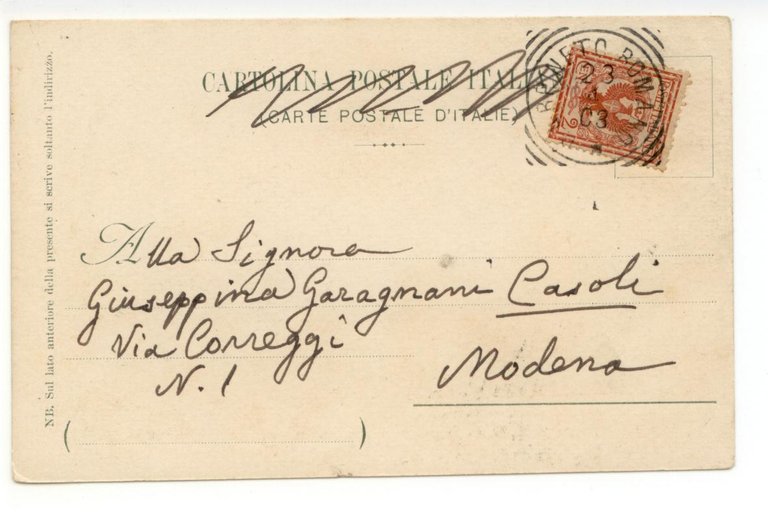 CARTOLINA POSTALE ITALI
(CARTE POSTALE D'ITALIE)
23
03
Alla Signora
Giuseppina Garagnani Casoli
Via Correggi
N. 1
Modena
NB. Sul lato anteriore della presente si scrive soltanto l'indirizzo.